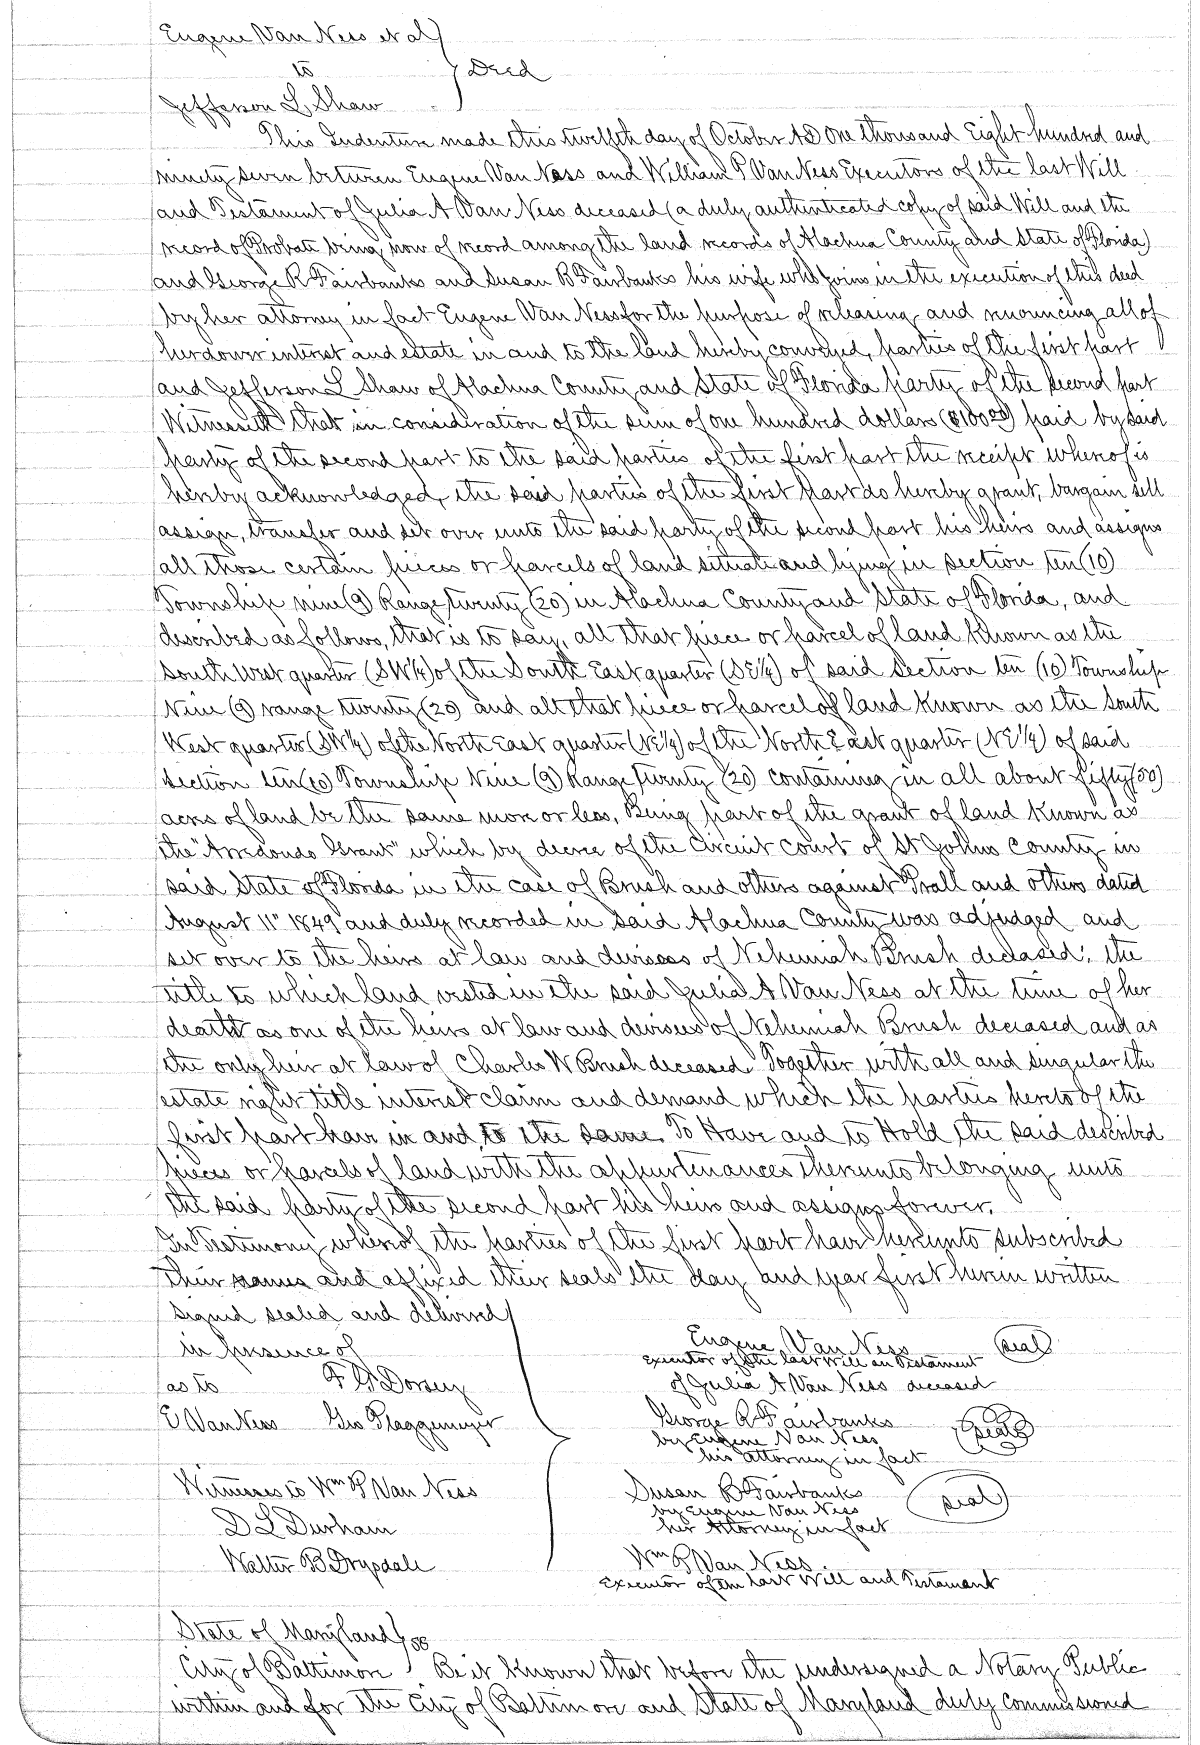 Eugene Van Ness et al)
to ) Deed
Jefferson L Shaw
This Indenture made this twelfth day of October AD One thousand Eight hundred and
ninety seven between Eugene Van Ness and William P Van Ness Executors of the last Will
and Testament of Julia A Van Ness deceased (a duly authenticated copy of said Will and the
record of Probate being now of record among the land records of Alachua County and State of Florida)
and George R Fairbanks and Susan B Fairbanks his wife who joins in the execution of this deed
by her attorney in fact Eugene Van Ness for the purpose of releasing and renouncing all of
her dower interest and estate in and to the land hereby conveyed, parties of the first part
and Jefferson L Shaw of Alachua County and State of Florida party of the second part
Witnesseth that in consideration of the sum of one hundred dollars ($100.00) paid by said
party of the second part to the said parties of the first part the receipt whereof is
hereby acknowledged, the said parties of the first part do hereby grant, bargain sell
assign, transfer and set over unto the said party of the second part his heirs and assigns
all those certain pieces or parcels of land situate and lying in section ten (10)
Township nine (9) Range twenty (20) in Alachua County and State of Florida, and
described as follows, that is to say, all that piece or parcel of land Known as the
South West quarter (SW¼) of the South East quarter (SE¼) of said Section ten (10) Township
Nine (9) range twenty (20) and all that piece or parcel of land Known as the South
West quarter (SW¼) of the North East quarter (NE¼) of the North East quarter (NE¼) of said
section ten (10) Township Nine (9) Range twenty (20) containing in all about fifty (50)
acres of land be the same more or less, Being part of the grant of land Known as
the "Arredondo Grant" which by decree of the Circuit Court of St Johns County in
said State of Florida in the case of Brush and others against Prall and others dated
August 11" 1849 and duly recorded in said Alachua County was adjudged and
set over to the heirs at law and devisees of Nehemiah Brush deceased; the
title to which land vested in the said Julia A Van Ness at the time of her
death as one of the heirs at law and devisees of Nehemiah Brush deceased and as
the only heir at law of Charles W Brush deceased Together with all and singular the
estate right title interest claim and demand which the parties hereto of the
first part have in and to the same. To Have and to Hold the said described
pieces or parcels of land with the appurtenances thereunto belonging unto
the said party of the second part his heirs and assigns forever.
In Testimony whereof the parties of the first part have hereunto subscribed
their names and affixed their seals the day and year first herein written
Signed sealed and delivered
in presence of
as to F G Dorsey
E Van Ness Geo Plaggemeyer
Witnesses to Wm P Van Ness
D L Durham
Walter B Drysdale
Eugene Van Ness (seal)
Executor of the last Will an Testament
of Julia A Van Ness deceased
George R Fairbanks (seal)
by Eugene Van Ness
his attorney in fact
Susan B Fairbanks (seal)
by Eugene Van Ness
her Attorney in fact
Wm P Van Ness
Executor of the last Will and Testament
State of Maryland) ss
City of Baltimore ) Be it known that before the undersigned a Notary Public
within and for the City of Baltimore and State of Maryland duly commissioned